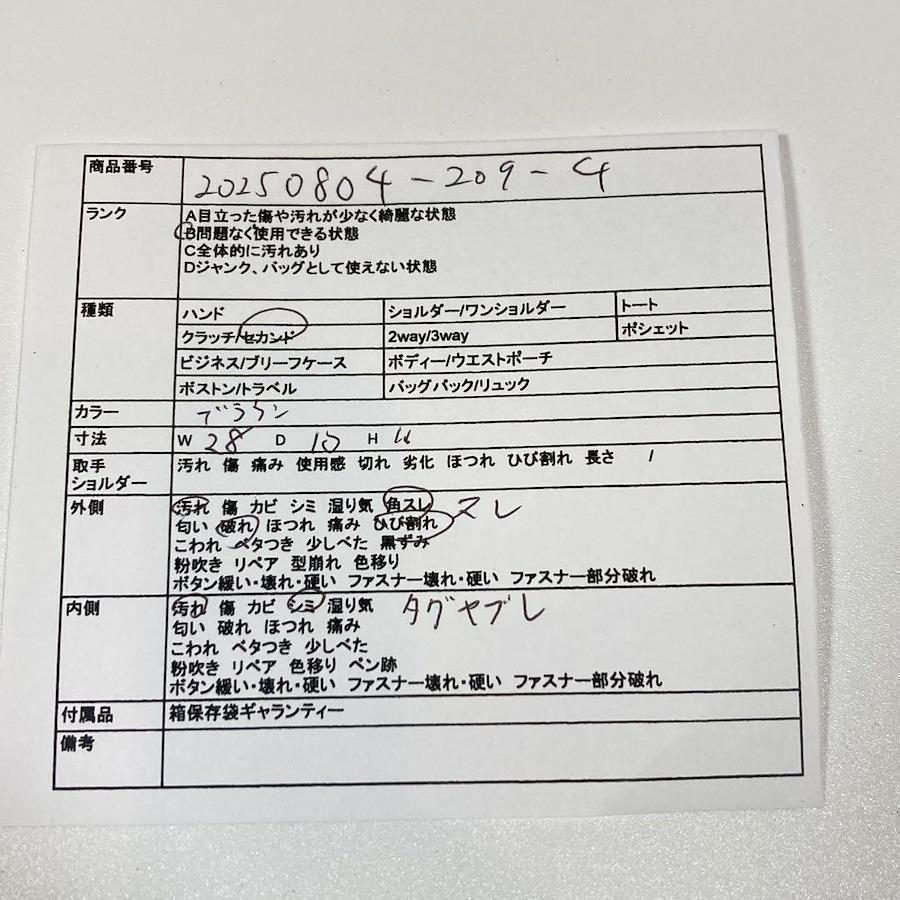 商品番号 20250804-209-4
ランク A目立った傷や汚れが少なく綺麗な状態
B問題なく使用できる状態
C全体的に汚れあり
Dジャンク、バッグとして使えない状態
種類 ハンド ショルダー/ワンショルダー トート
クラッチ/セカンド 2way/3way ポシェット
ビジネス/ブリーフケース ボディー/ウエストポーチ
ボストン/トラベル バッグパック/リュック
カラー ブラウン
寸法 W 28 D 10 H
取手 汚れ 傷 痛み 使用感 切れ 劣化 ほつれ ひび割れ 長さ /
ショルダー
外側 汚れ 傷 カビ シミ 湿り気 角スレ スレ
匂い 破れ ほつれ 痛み ひび割れ
こわれ ベタつき 少しべた 黒ずみ
粉吹き リペア 型崩れ 色移り
ボタン緩い・壊れ・硬い ファスナー壊れ・硬い ファスナー部分破れ
内側 汚れ 傷 カビ シミ 湿り気 タグヤブレ
匂い 破れ ほつれ 痛み
こわれ ベタつき 少しべた
粉吹き リペア 色移り ペン跡
ボタン緩い・壊れ・硬い ファスナー壊れ・硬い ファスナー部分破れ
付属品 箱保存袋ギャランティー
備考